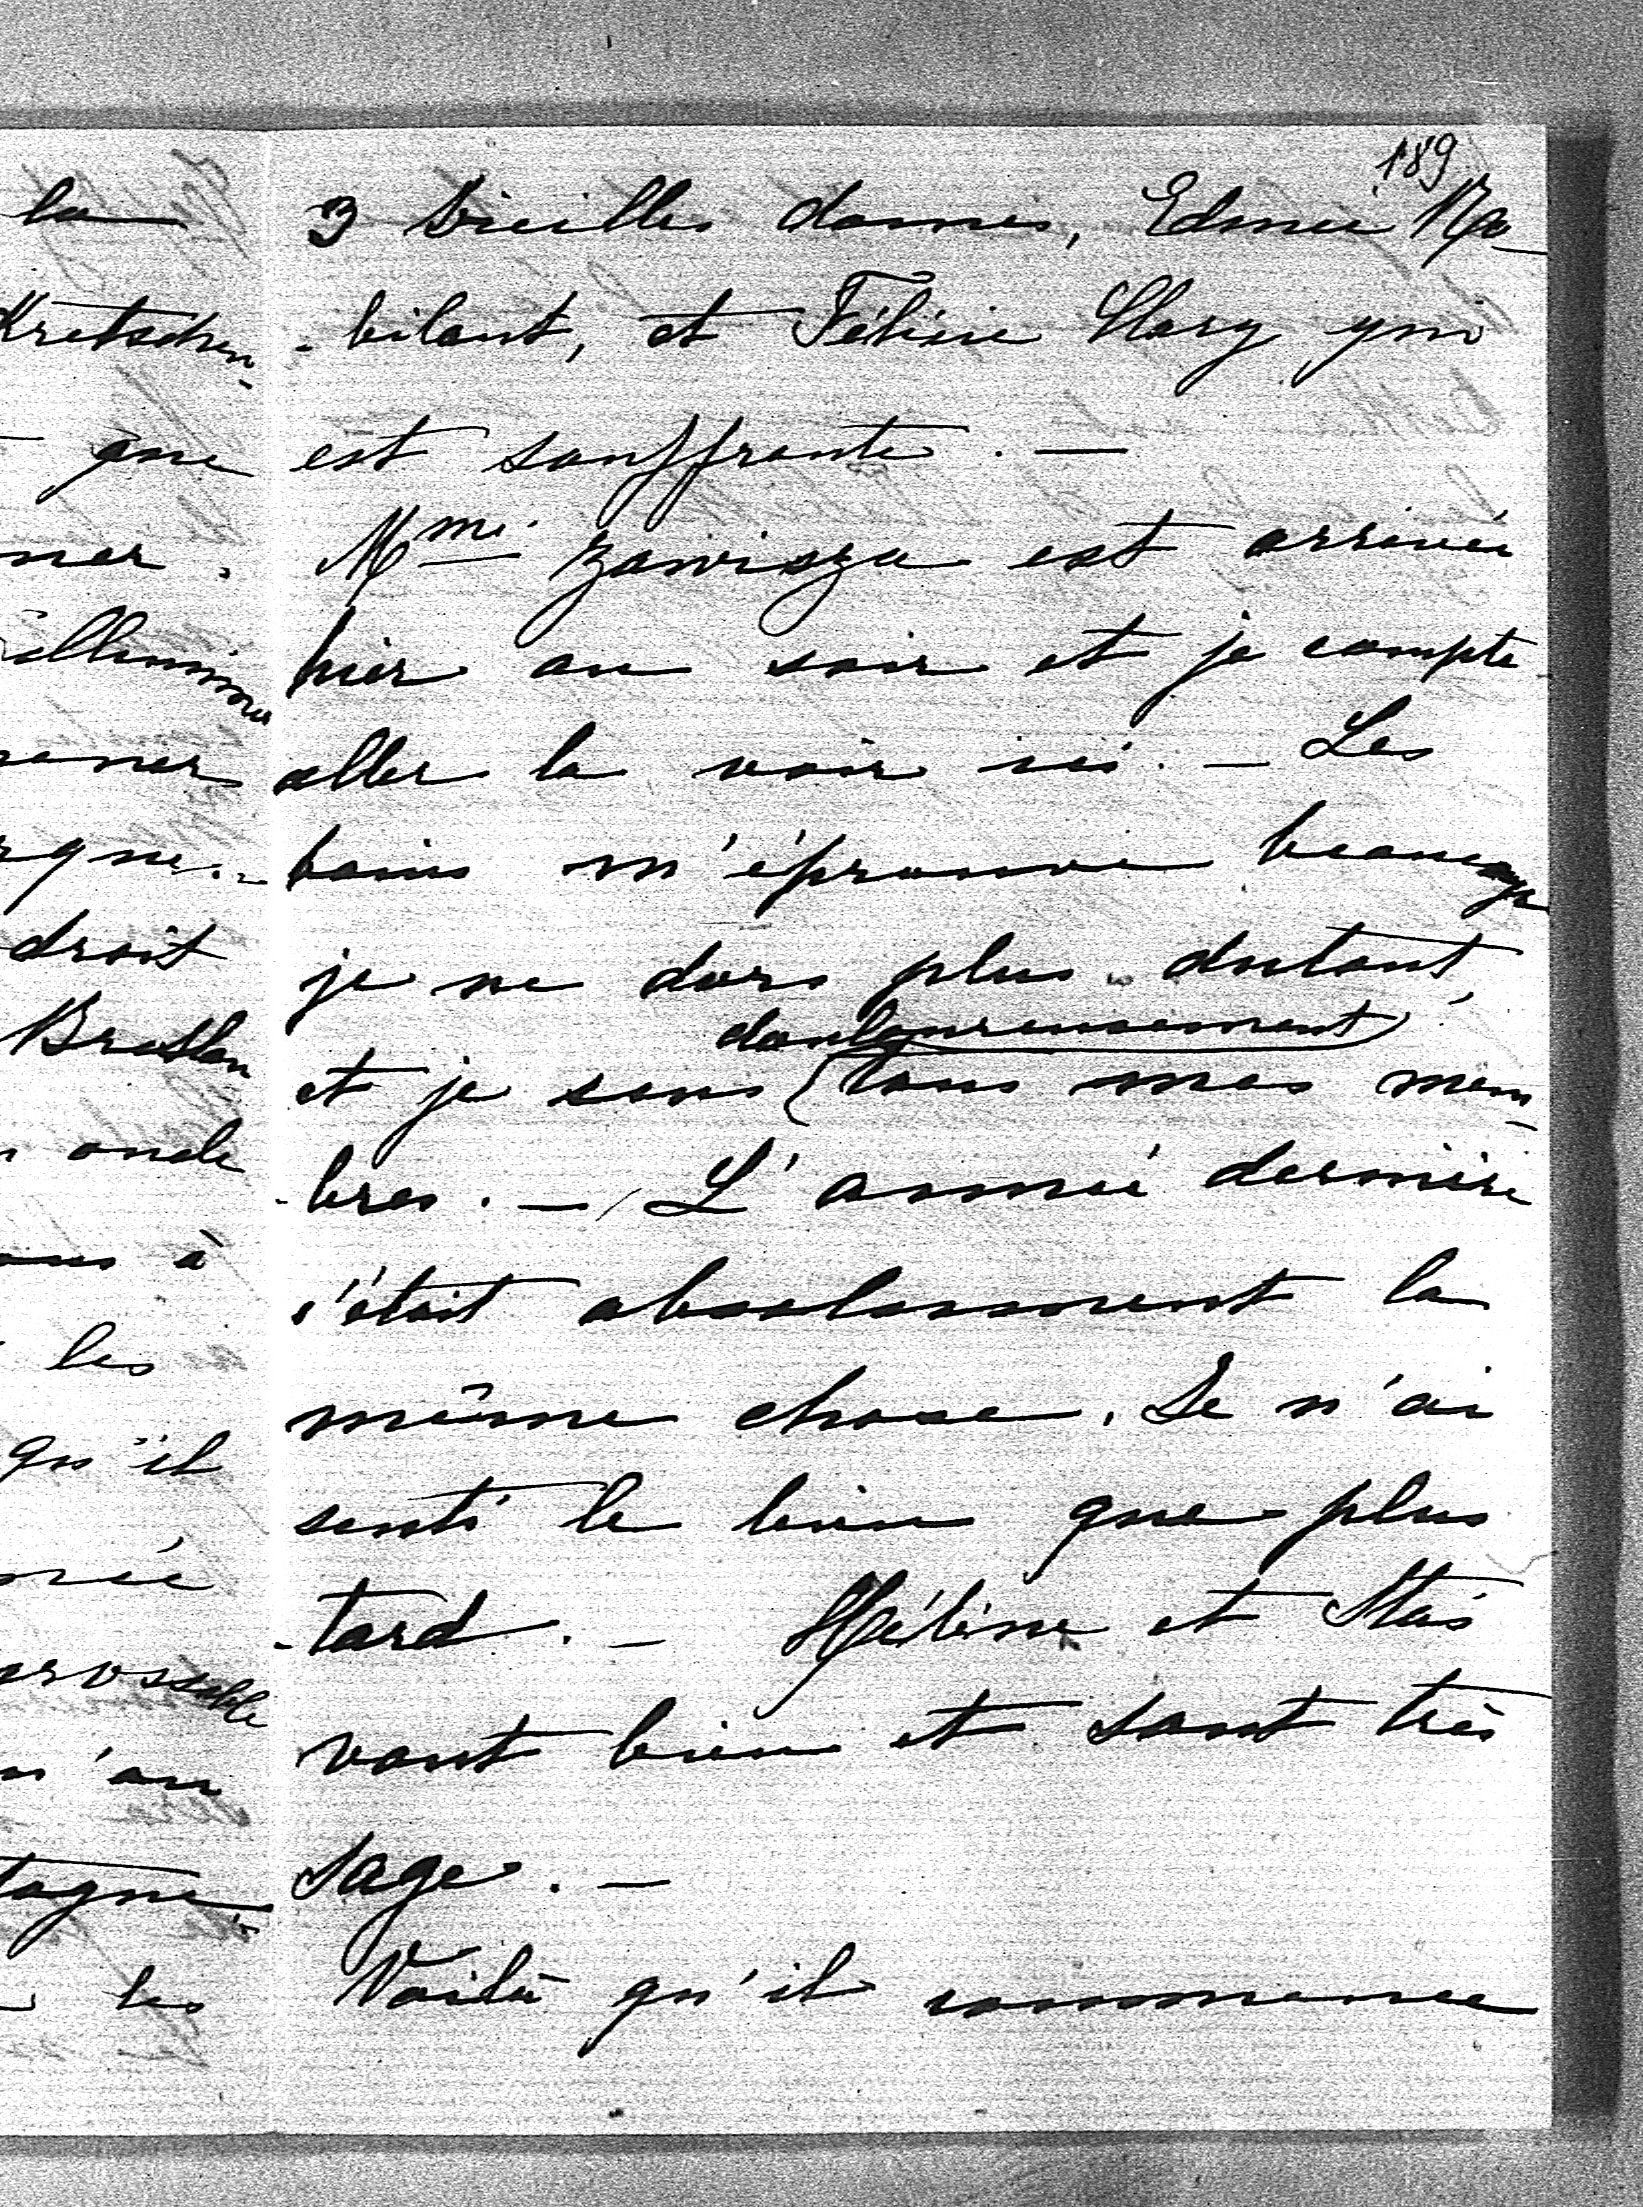 189
3 vieilles dames, Edmée Ro-
-bilant, et Félicie Clary qui
est souffrante. —
Mme Zawisza est arrivée
hier au soir et je compte
aller la voir ici. — Les
bains m'éprouve beaucoup
je ne dors plus dutout,
douloureusement
et je sens tous mes mem-
-bres. — L'année dernière
c'était absolument la
même chose. Je n'ai
senti le bien que plus
tard. — Hélène et Stas
vont bien et sont très
sage. —
Voilà qu'il commence
la
Kretschm-
que
mer.
droit
Breslau
oncle
à
les
qu'il
les